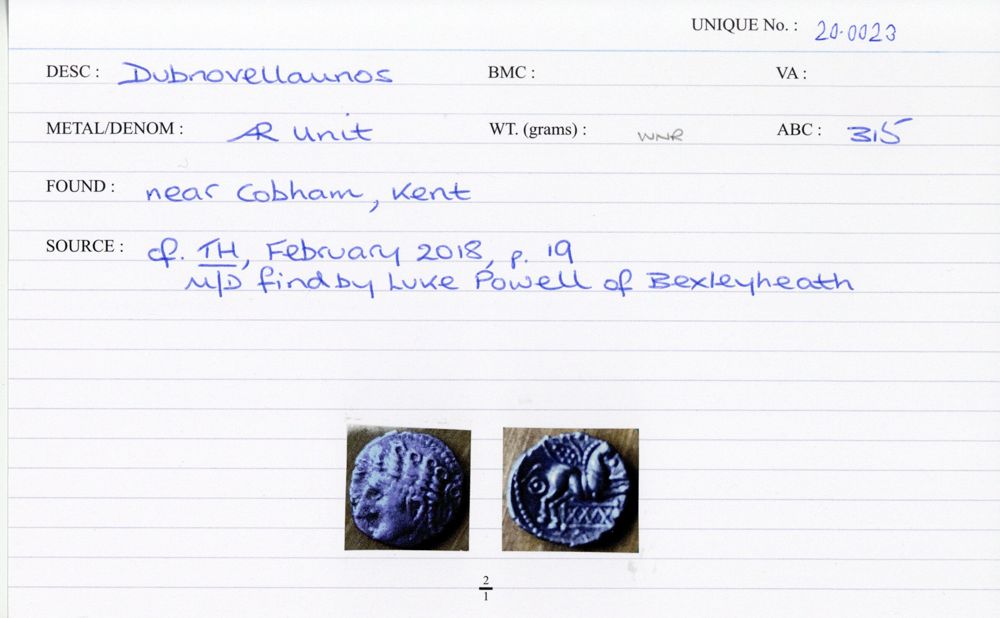 UNIQUE No. : 20.0023
DESC : Dubnovellaunos BMC : VA :
METAL/DENOM : AR unit WT. (grams) : WNR ABC : 315
FOUND : near Cobham, Kent
SOURCE : cf. TH, February 2018, p. 19
M/D find by Luke Powell of Bexleyheath
2
1